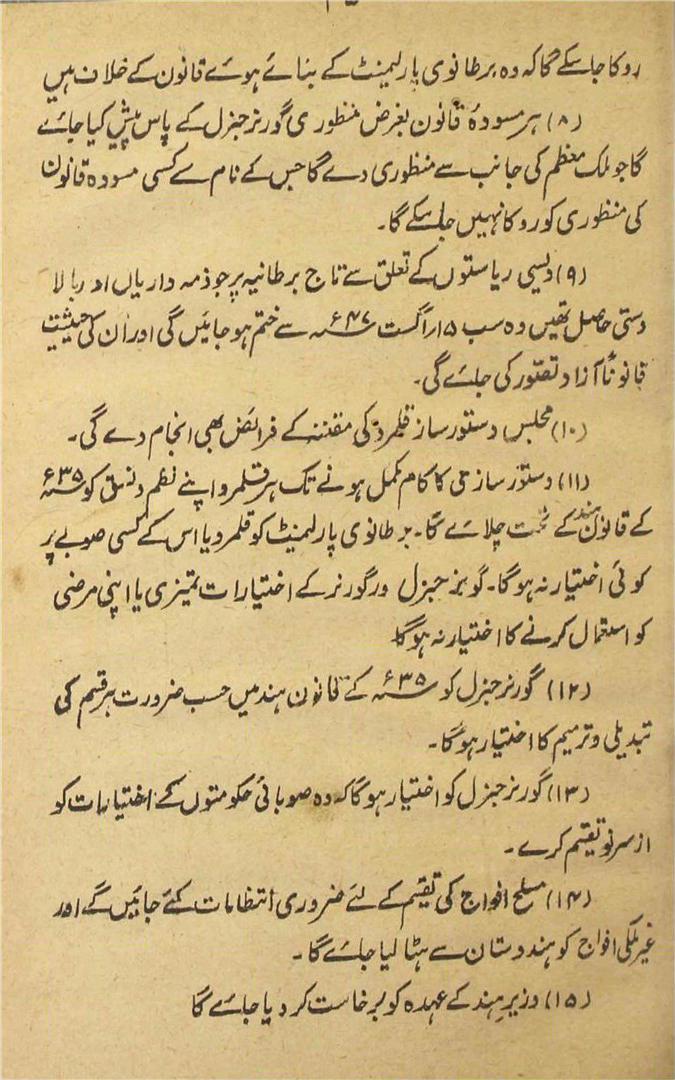 روکا جا سکے گا کہ وہ برطانوی پارلیمنٹ کے بنائے ہوئے قانون کے خلاف ہیں
(۸) ہر مسودۂ قانون بغرض منظوری گورنر جنرل کے پاس پیش کیا جائے
گا جو ملک معظم کی جانب سے منظوری دے گا جس کے نام سے کسی مسودہ قانون
کی منظوری کو روکا نہیں جا سکے گا۔
(۹) دیسی ریاستوں کے تعلق سے تاج برطانیہ پر جو ذمہ داریاں اور بالا
دستی حاصل تھیں وہ سب ۱۵ اگست ۴۷ء سے ختم ہو جائیں گی اور ان کی حیثیت
قانوناً آزاد تصور کی جائے گی۔
(۱۰) مجلس دستور ساز قلمرو کی مقننہ کے فرائض بھی انجام دے گی۔
(۱۱) دستور سازی کا کام مکمل ہونے تک ہر قلمرو اپنے نظم و نسق کو ۳۵ء
کے قانون ہند کے تحت چلائے گا۔ برطانوی پارلیمنٹ کو قلمرو یا اس کے کسی صوبے پر
کوئی اختیار نہ ہوگا۔ گورنر جنرل ورگورنر کے اختیارات تمیزی یا اپنی مرضی
کو استعمال کرنے کا اختیار نہ ہوگا
(۱۲) گورنر جنرل کو ۳۵ء کے قانون ہند میں حسب ضرورت ہر قسم کی
تبدیلی و ترمیم کا اختیار ہوگا۔
(۱۳) گورنر جنرل کو اختیار ہوگا کہ وہ صوبائی حکومتوں کے اختیارات کو
از سر نو تقسیم کرے۔
(۱۴) مسلح افواج کی تقسیم کے لئے ضروری انتظامات کئے جائیں گے اور
غیر ملکی افواج کو ہندوستان سے ہٹا لیا جائے گا۔
(۱۵) وزیرِ ہند کے عہدہ کو برخاست کر دیا جائے گا